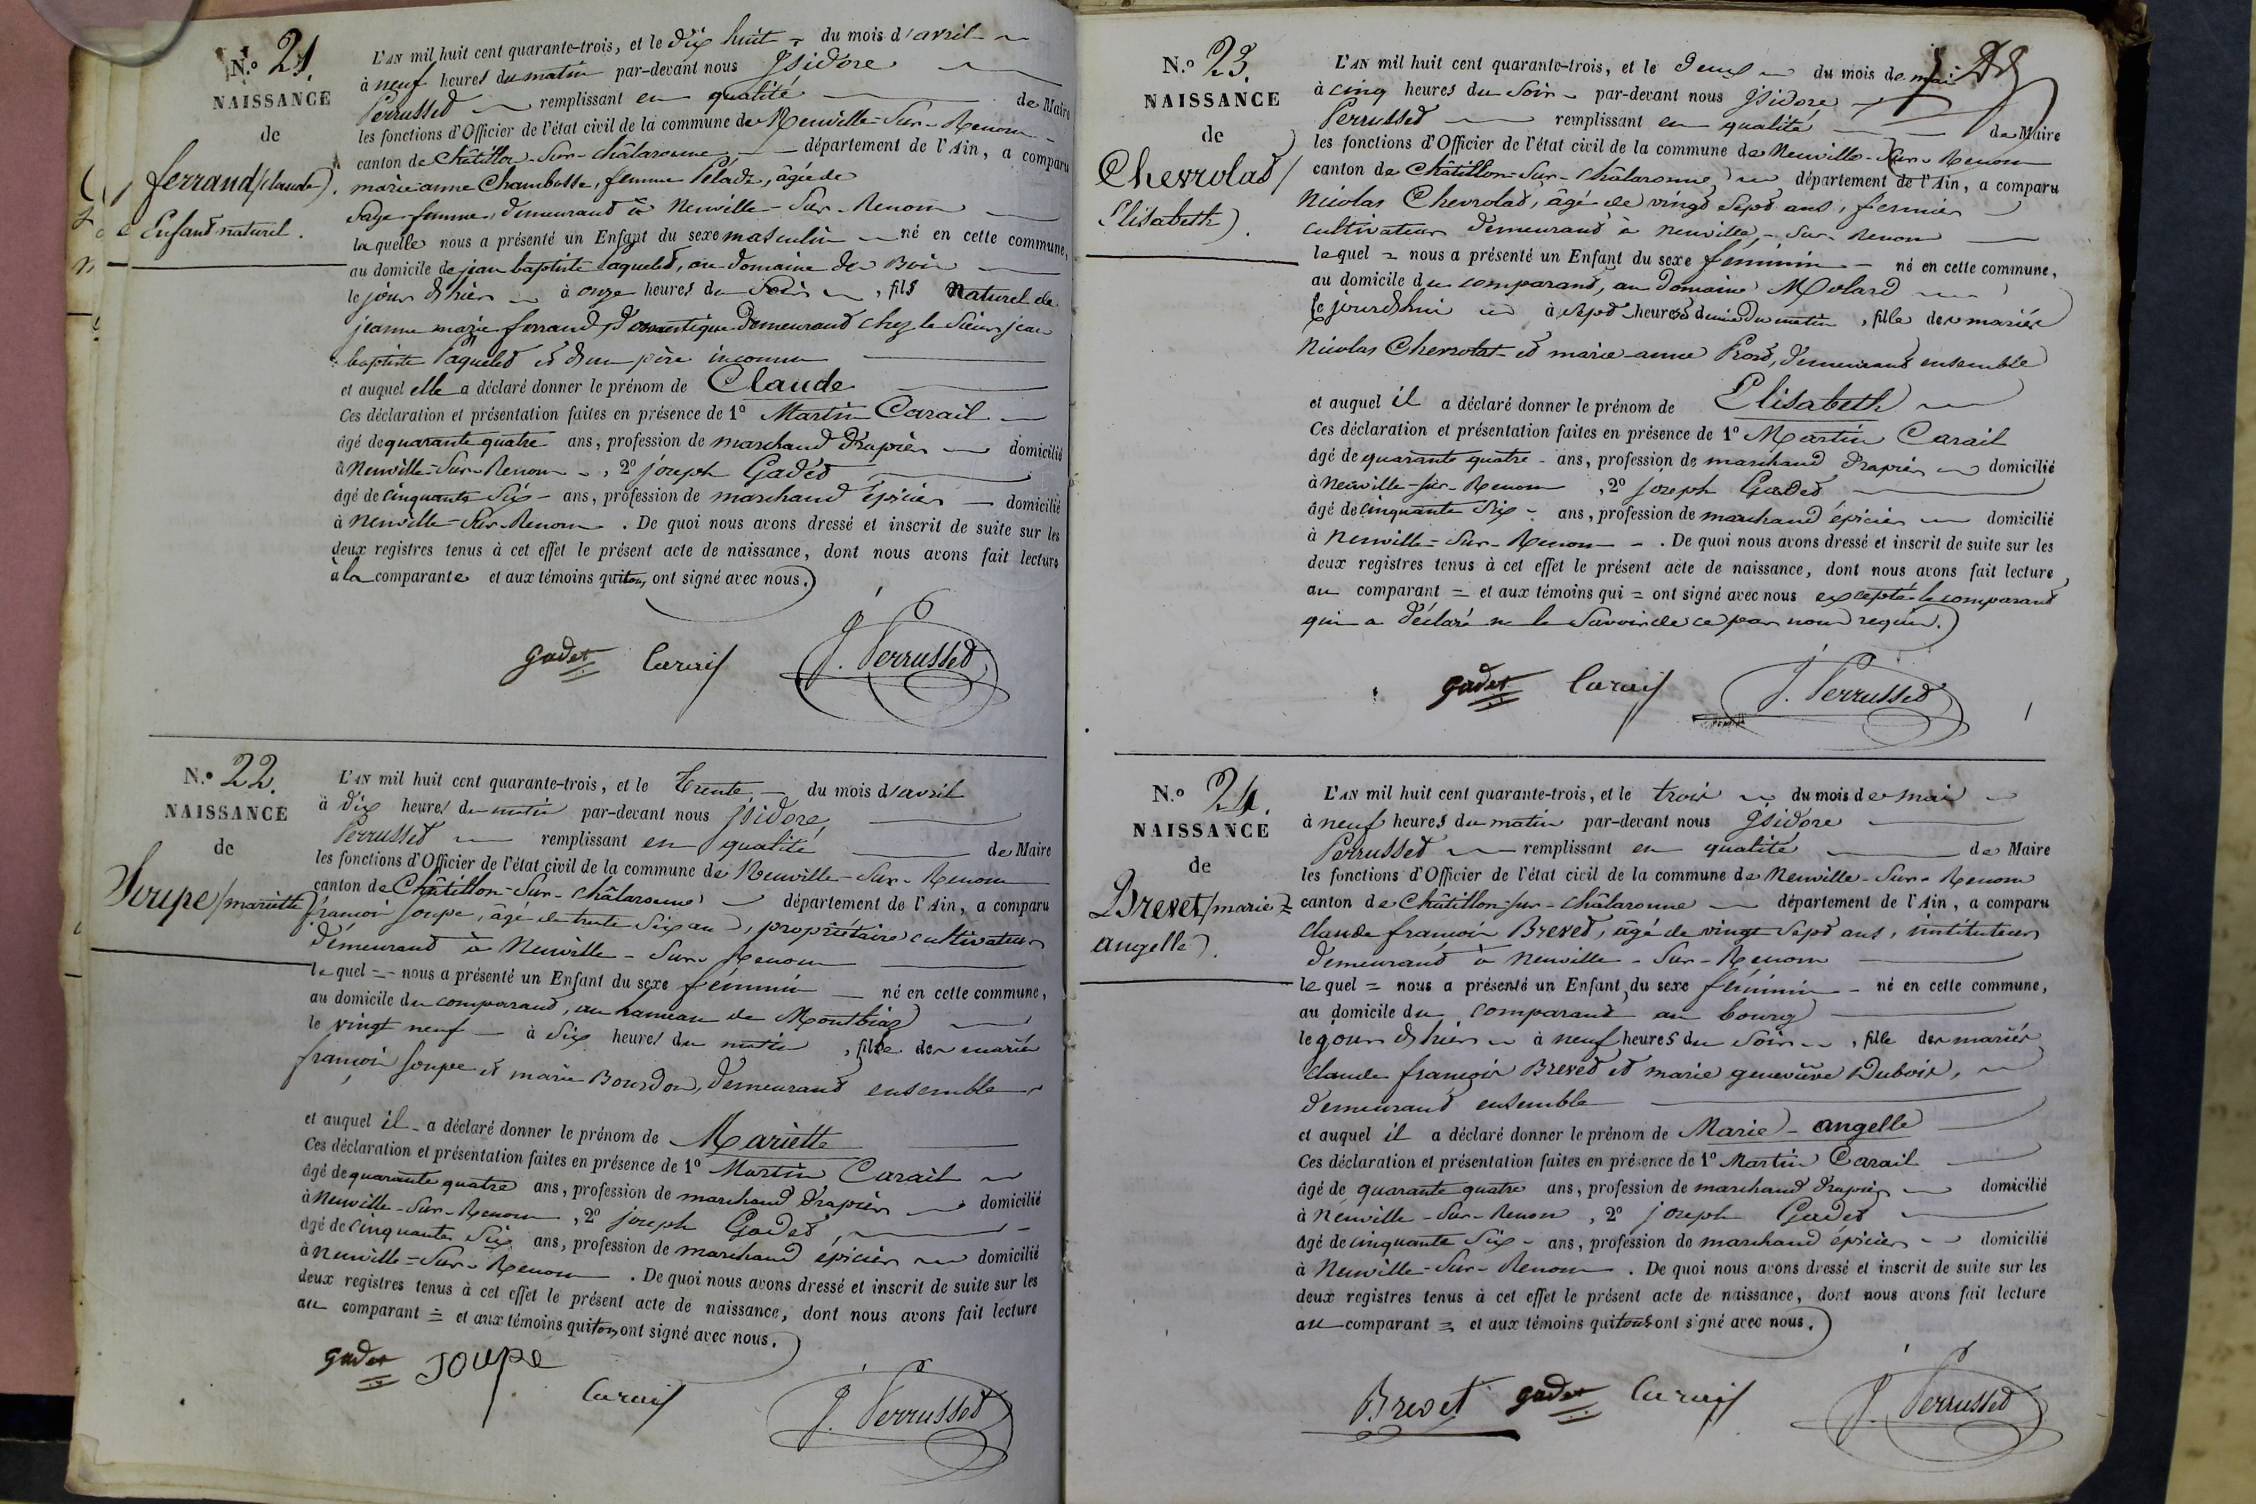 N.º 21.
NAISSANCE
de
ferrand (claude).
Enfant naturel.
L'AN mil huit cent quarante-trois, et le dix huit du mois d'avril
à neuf heures du matin par-devant nous Isidore
Perrusset remplissant en qualité de Maire
les fonctions d'Officier de l'état civil de la commune de Neuville-Sur-Renom
canton de Châtillon-Sur-châlaronne département de l'Ain, a comparu
marie anne Chambosse, femme Pelade, âgée de
Sage-femme, demeurant à Neuville-Sur-Renom
laquelle nous a présenté un Enfant du sexe masculin né en cette commune,
au domicile de jean baptiste Laquelet, au domaine du Bois
le jour d'hier à onze heures du Soir, fils Naturel de
jeanne marie ferrand, domestique demeurant chez le Sieur jean
baptiste Laquelet et d'un père inconnu
et auquel elle a déclaré donner le prénom de Claude
Ces déclaration et présentation faites en présence de 1º Martin Carail
âgé de quarante quatre ans, profession de marchand drapier domicilié
à Neuville-Sur-Renom, 2º joseph Gadet
âgé de cinquante Six ans, profession de marchand épicier domicilié
à Neuville-Sur-Renom. De quoi nous avons dressé et inscrit de suite sur les
deux registres tenus à cet effet le présent acte de naissance, dont nous avons fait lecture
à la comparante et aux témoins qui tous ont signé avec nous.
gadet Carail J. Perrusset
N.º 22.
NAISSANCE
de
Soupe (mariette)
L'AN mil huit cent quarante-trois, et le Trente du mois d'avril
à dix heures du matin par-devant nous Isidore
Perrusset remplissant en qualité de Maire
les fonctions d'Officier de l'état civil de la commune de Neuville-Sur-Renom
canton de Châtillon-Sur-châlaronne département de l'Ain, a comparu
françois Soupe, âgé de trente Six ans, propriétaire cultivateur
demeurant à Neuville-Sur-Renom
lequel = nous a présenté un Enfant du sexe féminin né en cette commune,
au domicile du comparant, au hameau de Montbiaz
le vingt neuf à Six heures du matin, fille des mariés
françois Soupe et marie Bourdon, demeurant ensemble
et auquel il a déclaré donner le prénom de Mariette
Ces déclaration et présentation faites en présence de 1º Martin Carail
âgé de quarante quatre ans, profession de marchand drapier domicilié
à Neuville-Sur-Renom, 2º joseph Gadet
âgé de cinquante Six ans, profession de marchand épicier domicilié
à Neuville-Sur-Renom. De quoi nous avons dressé et inscrit de suite sur les
deux registres tenus à cet effet le présent acte de naissance, dont nous avons fait lecture
au comparant = et aux témoins qui tous ont signé avec nous.
gadet soupe
Carail J. Perrusset
N.º 23.
NAISSANCE
de
Chevrolat (
Elisabeth).
L'AN mil huit cent quarante-trois, et le deux du mois de mai
à cinq heures du Soir par-devant nous Isidore
Perrusset remplissant en qualité de Maire
les fonctions d'Officier de l'état civil de la commune de Neuville-Sur-Renom
canton de Châtillon-Sur-châlaronne département de l'Ain, a comparu
Nicolas Chevrolat, âgé de vingt Sept ans, fermier
cultivateur demeurant à Neuville-Sur-Renom
lequel = nous a présenté un Enfant du sexe féminin né en cette commune,
au domicile du comparant, au domaine Molard
ce jourd'hui à Sept heures & demie du matin, fille des mariés
Nicolas Chevrolat et marie anne Prost, demeurant ensemble
et auquel il a déclaré donner le prénom de Elisabeth
Ces déclaration et présentation faites en présence de 1º Martin Carail
âgé de quarante quatre ans, profession de marchand drapier domicilié
à Neuville-Sur-Renom, 2º joseph Gadet
âgé de cinquante Six ans, profession de marchand épicier domicilié
à Neuville-Sur-Renom. De quoi nous avons dressé et inscrit de suite sur les
deux registres tenus à cet effet le présent acte de naissance, dont nous avons fait lecture
au comparant = et aux témoins qui = ont signé avec nous excepté le comparant
qui a déclaré ne le Savoir de ce par nous requis.
gadet Carail J. Perrusset
N.º 24.
NAISSANCE
de
Brevet (marie =
angelle).
L'AN mil huit cent quarante-trois, et le trois du mois de mai
à neuf heures du matin par-devant nous Isidore
Perrusset remplissant en qualité de Maire
les fonctions d'Officier de l'état civil de la commune de Neuville-Sur-Renom
canton de Châtillon-sur-châlaronne département de l'Ain, a comparu
claude françois Brevet, âgé de vingt Sept ans, instituteur
demeurant à Neuville-Sur-Renom
lequel = nous a présenté un Enfant du sexe féminin né en cette commune,
au domicile du comparant au bourg
le jour d'hier à neuf heures du Soir, fille des mariés
claude françois Brevet et marie geneviève Dubois,
demeurant ensemble
et auquel il a déclaré donner le prénom de Marie-angelle
Ces déclaration et présentation faites en présence de 1º Martin Carail
âgé de quarante quatre ans, profession de marchand drapier domicilié
à Neuville-Sur-Renom, 2º joseph Gadet
âgé de cinquante Six ans, profession de marchand épicier domicilié
à Neuville-Sur-Renom. De quoi nous avons dressé et inscrit de suite sur les
deux registres tenus à cet effet le présent acte de naissance, dont nous avons fait lecture
au comparant = et aux témoins qui tous ont signé avec nous.
Brevet gadet Carail J. Perrusset